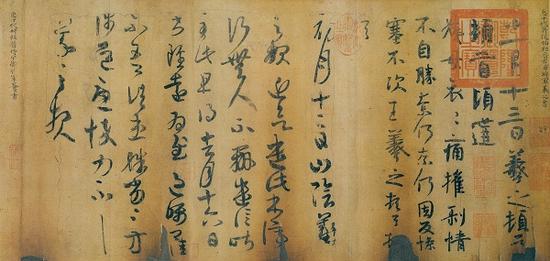 十一月十三日羲之頓首
頓首頃遘
姨母哀哀痛摧剝情
不自勝奈何奈何因反慘
塞不次王羲之頓首頓
首
初月十二日山陰羲
之報近欲遣此書停
行無人不辦遣信昨
至此且得去月十六日
書雖遠為慰過囑
不吾諸患殊勞弱方
涉道憂悴力不
羲之報